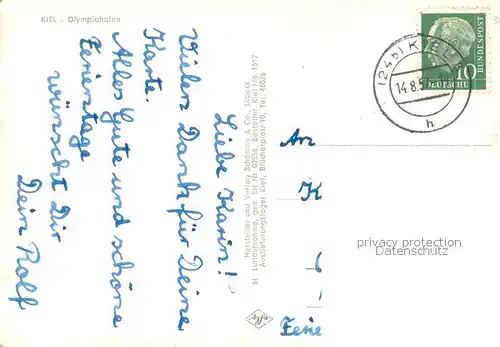 KIEL - Olympiahafen
Liebe Karin!
Vielen Dank für Deine
Karte.
Alles Gute und schöne
Ferientage
wünscht Dir
Dein Rolf
Hersteller und Verlag Schöning & Co., Lübeck
Luftaufnahme, gen. SH Nr. 02558, Bestellnr. Kiel Flg. 1517
Auslieferungslager Kiel, Blücherplatz 10, Tel. 46026
(24b) KIEL
14.8.
h
10
DEUTSCHE
BUNDESPOST
An
K
Ferie
privacy protection
Datenschutz